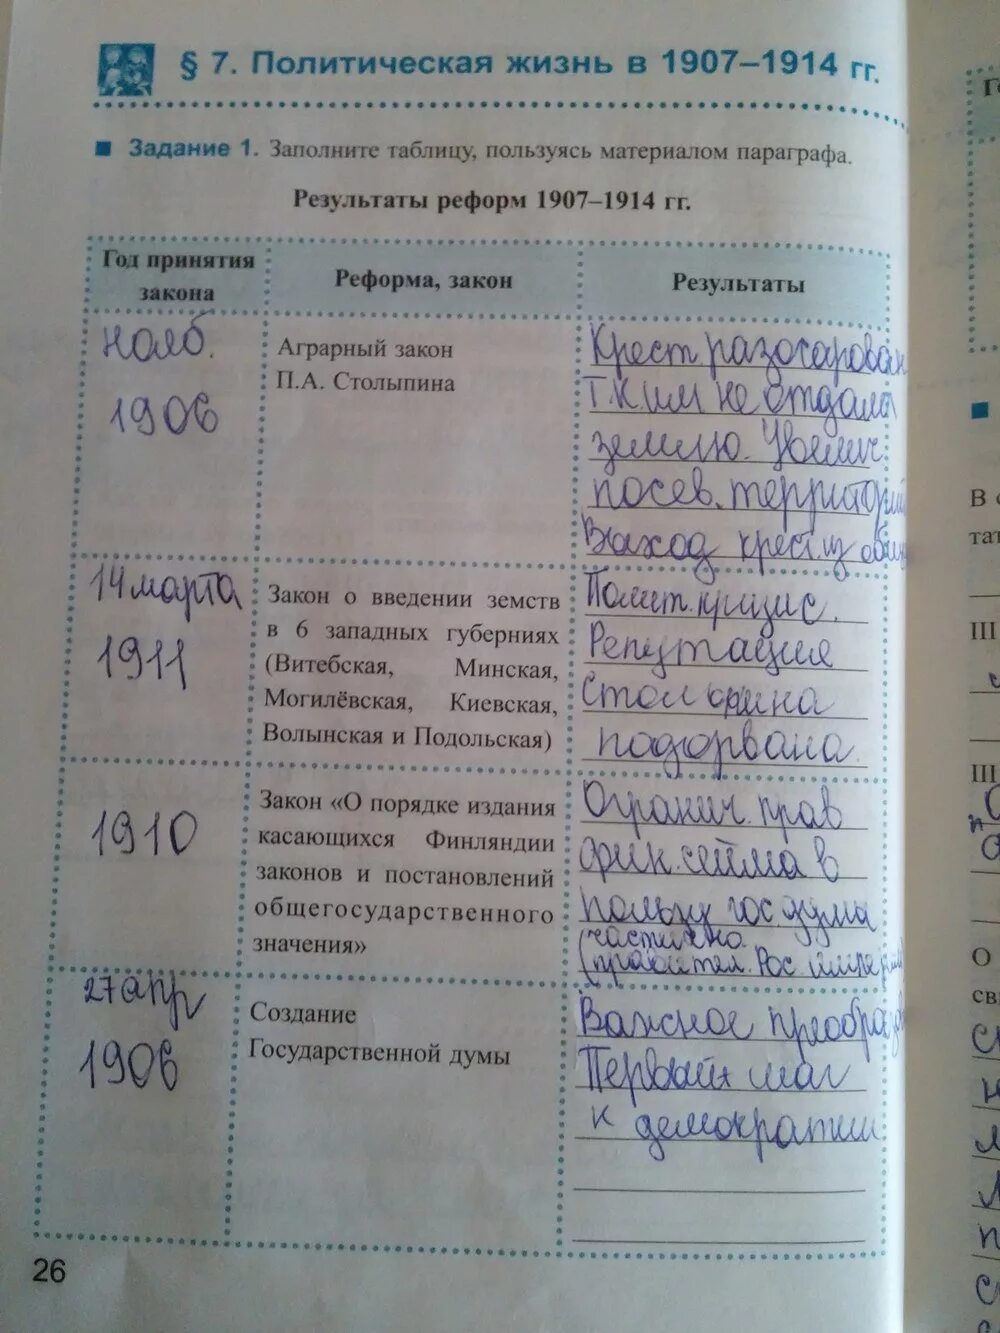 § 7. Политическая жизнь в 1907–1914 гг.
Задание 1. Заполните таблицу, пользуясь материалом параграфа.
Результаты реформ 1907–1914 гг.
Год принятия
закона
Реформа, закон
Результаты
нояб.
1906
Аграрный закон
П.А. Столыпина
Крест разосарован
т.к им не отдали
землю. Увелич
посев. территорий
Выход крест из общ
14 марта
1911
Закон о введении земств
в 6 западных губерниях
(Витебская, Минская,
Могилёвская, Киевская,
Волынская и Подольская)
Полит. кризис.
Репутация
Столыпина
подорвана
1910
Закон «О порядке издания
касающихся Финляндии
законов и постановлений
общегосударственного
значения»
Огранич. прав
фин. сейма в
пользу гос. дума
(частично
(правител. Рос. импер
27 апр
1906
Создание
Государственной думы
Важное преобраз
Первый шаг
к демократии
26
В
тат
III
III
О
св